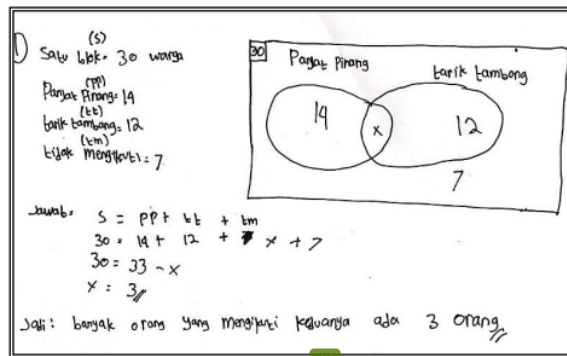 1
(S)
Satu blok = 30 warga
(PP)
Panjat Pinang = 14
(tt)
tarik tambang = 12
(tm)
tidak mengikuti = 7
30
Panjat Pinang
tarik tambang
14
x
12
7
Jawab =
S = PP + tt + tm
30 = 14 + 12 + x + 7
30 = 33 - x
x = 3
Jadi : banyak orang yang mengikuti keduanya ada 3 orang